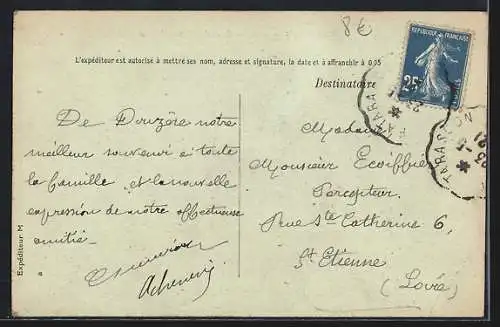 8€
L'expéditeur est autorisé à mettre ses nom, adresse et signature, la date et à affranchir à 0.05
Destinataire
REPUBLIQUE FRANÇAISE
25c
POSTES
TARASCON
23-5
21
De Donzère notre
meilleur souvenir à toute
la famille et la nouvelle
expression de notre affectueuse
amitié
Madame
Monsieur Ecoiffier
Percepteur
Rue Ste Catherine 6,
St Etienne
(Loire)
Expéditeur M